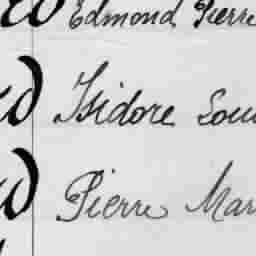 Edmond Pierre
Isidore Loui
Pierre Mar